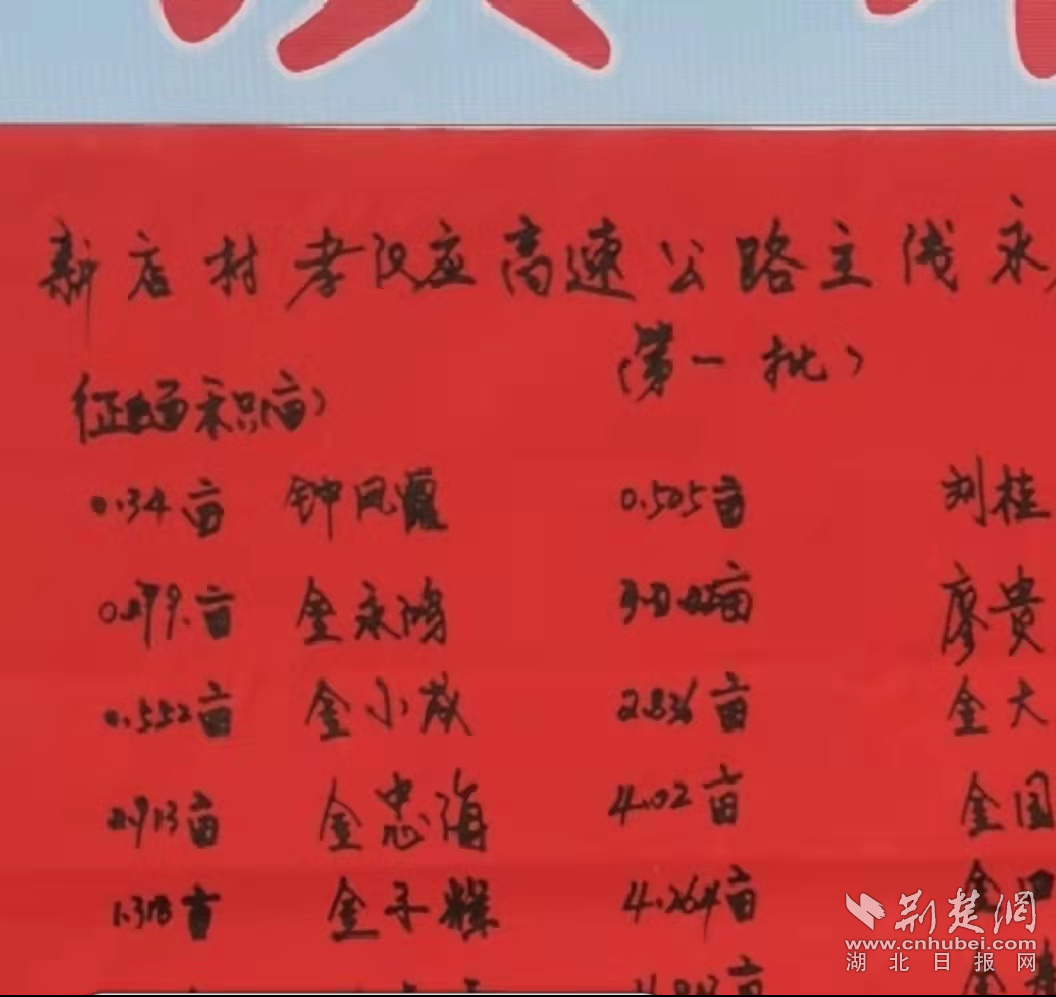 新店村孝汉应高速公路主线永
(第一批)
征地面积(亩)
0.34亩 钟凤霞 0.505亩 刘桂
亩 金永鸿 亩 廖贵
0.552亩 金小 2.836亩 金大
2.913亩 金忠海 4.02亩 金国
1.318亩 金子 4.264亩 金四
荆楚网
www.cnhubei.com
湖北日报网